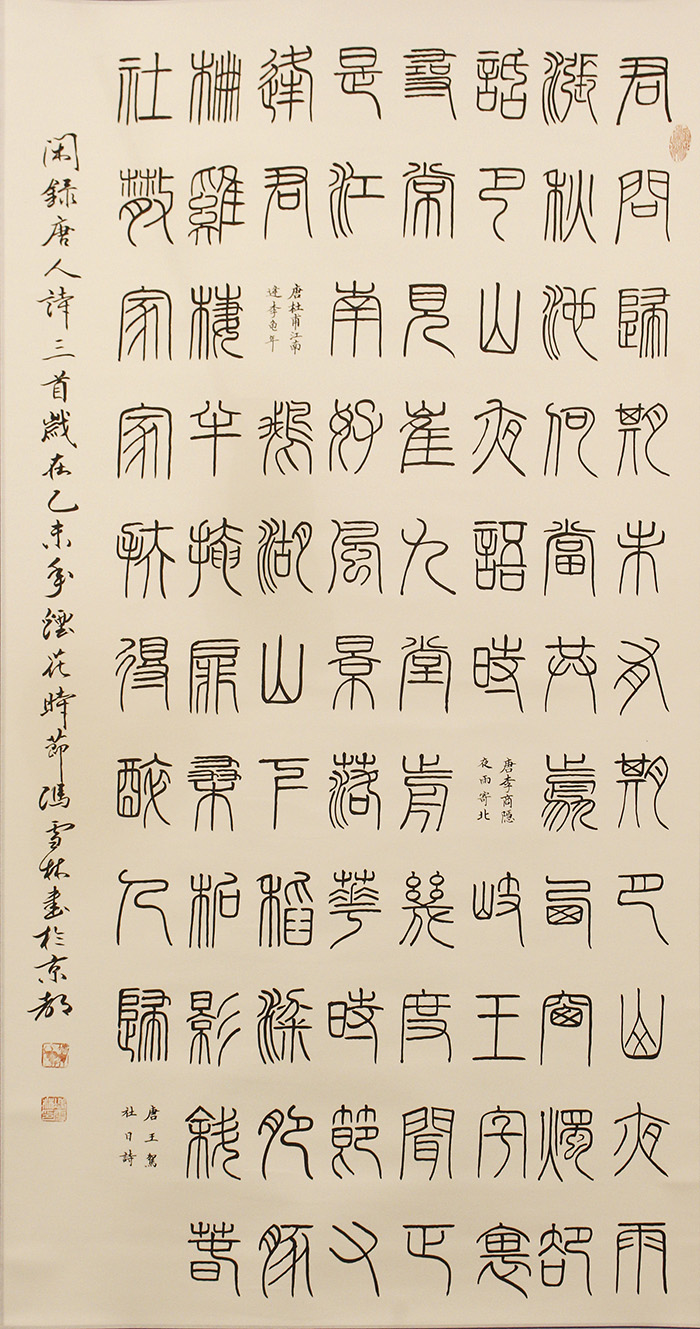 君問歸期未有期巴山夜雨
漲秋池何當共剪西窗燭卻
話巴山夜語時
唐李商隐
夜雨寄北
岐王宅裏
尋常見崔九堂前幾度聞正
是江南好風景落華時節又
逢君
唐杜甫江南
逢李龟年
鵝湖山下稻粱肥豚
柵雞棲半掩扉桑柘影斜春
社散家家扶得醉人歸
唐王駕
社日詩
閑録唐人詩三首歲在乙未年花時節馮雪林書於京都